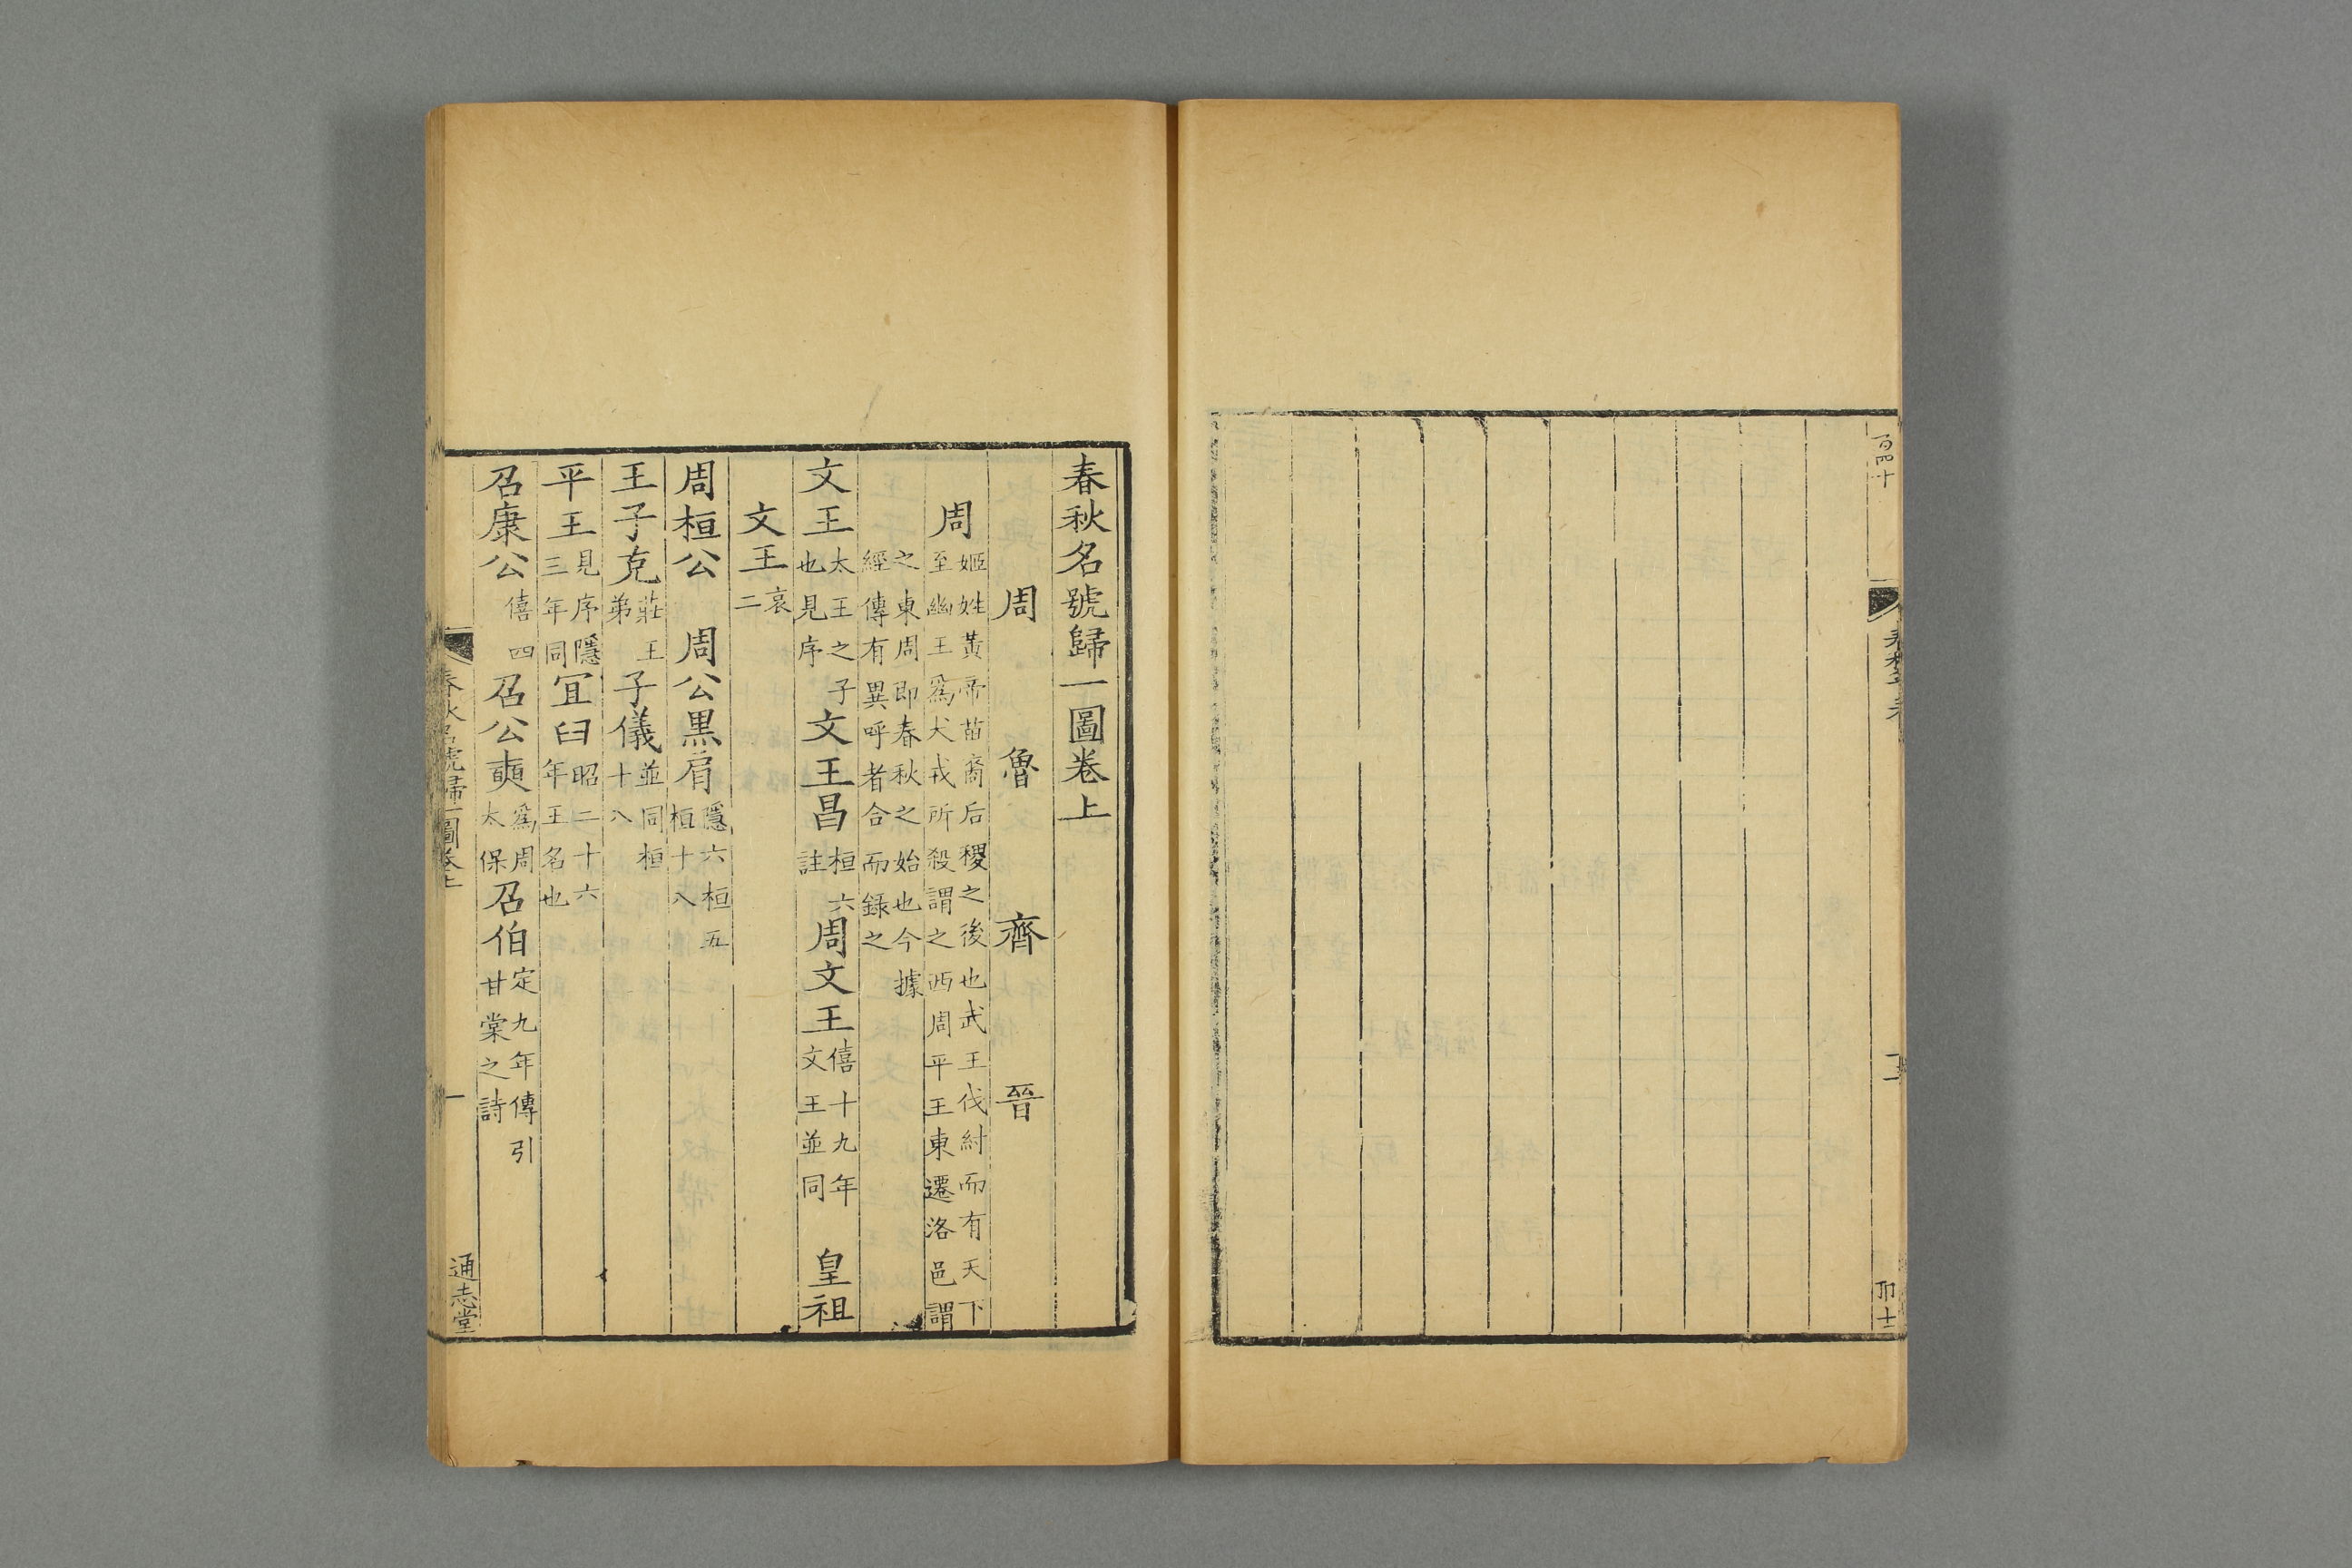 百四十
春秋年表
卯十
春秋名號歸一圖卷上
周 魯 齊 晉
周
姬姓黃帝苗裔后稷之後也武王伐紂而有天下
至幽王爲犬戎所殺謂之西周平王東遷洛邑謂
之東周即春秋之始也今據
經傳有異呼者合而録之
文王 太王之子也見序 文王昌 桓六註 周文王 僖十九年文王並同 皇祖
文王 哀二
周桓公 周公黑肩 隱六桓五桓十八
王子克 莊王弟 子儀 並同桓十八
平王 見序隱三年同 宜臼 昭二十六年王名也
召康公 僖四 召公奭 爲周太保 召伯 定九年傳引甘棠之詩
春秋名號歸一圖卷上
一
通志堂